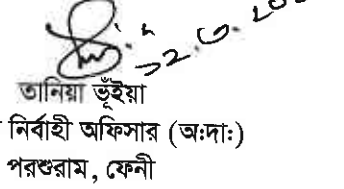 তানিয়া ভূঁইয়া
নির্বাহী অফিসার (অ:দা:)
পরশুরাম, ফেনী